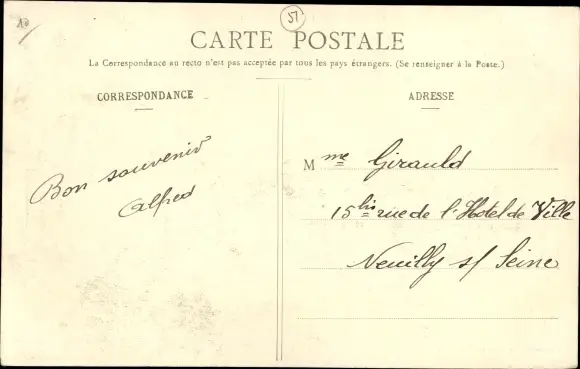 51
CARTE POSTALE
La Correspondance au recto n'est pas acceptée par tous les pays étrangers. (Se renseigner à la Poste.)
CORRESPONDANCE
Bon souvenir
Alfred
ADRESSE
Mme Girauld
15 bis rue de l'Hotel de Ville
Neuilly s/ Seine